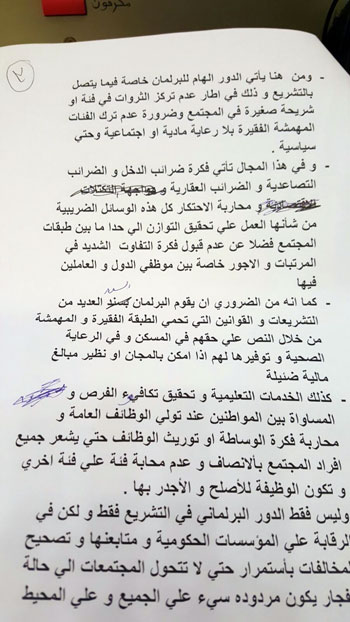 محرمون
٢
- ومن هنا يأتي الدور الهام للبرلمان خاصة فيما يتصل
بالتشريع و ذلك في اطار عدم تركز الثروات في فئة او
شريحة صغيرة في المجتمع وضرورة عدم ترك الفئات
المهمشة الفقيرة بلا رعاية مادية او اجتماعية وحتي
سياسية .
- و في هذا المجال تأتي فكرة ضرائب الدخل و الضرائب
التصاعدية و الضرائب العقارية و مواجهة التكتلات
و محاربة الاحتكار كل هذه الوسائل الضريبية
من شأنها العمل علي تحقيق التوازن الي حدا ما بين طبقات
المجتمع فضلا عن عدم قبول فكرة التفاوت الشديد في
المرتبات و الاجور خاصة بين موظفي الدول و العاملين
فيها
- كما انه من الضروري ان يقوم البرلمان العديد من
التشريعات و القوانين التي تحمي الطبقة الفقيرة و المهمشة
من خلال النص علي حقهم في المسكن و في الرعاية
الصحية و توفيرها لهم اذا امكن بالمجان او نظير مبالغ
مالية ضئيلة
- كذلك الخدمات التعليمية و تحقيق تكافيء الفرص و
المساواة بين المواطنين عند تولي الوظائف العامة و
محاربة فكرة الوساطة او توريث الوظائف حتي يشعر جميع
افراد المجتمع بألانصاف و عدم محابة فئة علي فئة اخري
و تكون الوظيفة للأصلح و الأجدر بها .
وليس فقط الدور البرلماني في التشريع فقط و لكن في
الرقابة علي المؤسسات الحكومية و متابعتها و تصحيح
لمخالفات بأستمرار حتي لا تتحول المجتمعات الي حالة
فجار يكون مردوده سيء علي الجميع و علي المحيط